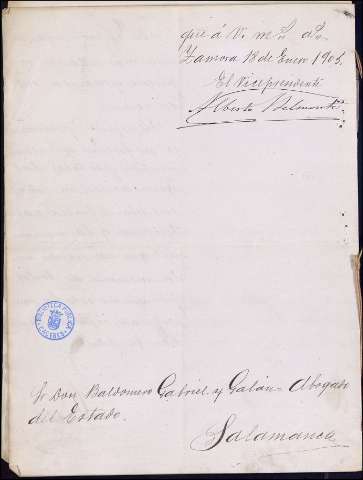 que á V. m. a.
Zamora 18 de Enero 1905.
El Vicepresidente
Alberto Belmonte
BIBLIOTECA PUBLICA
CACERES
Sr Don Baldomero Gabriel y Galán - Abogado
del Estado.
Salamanca